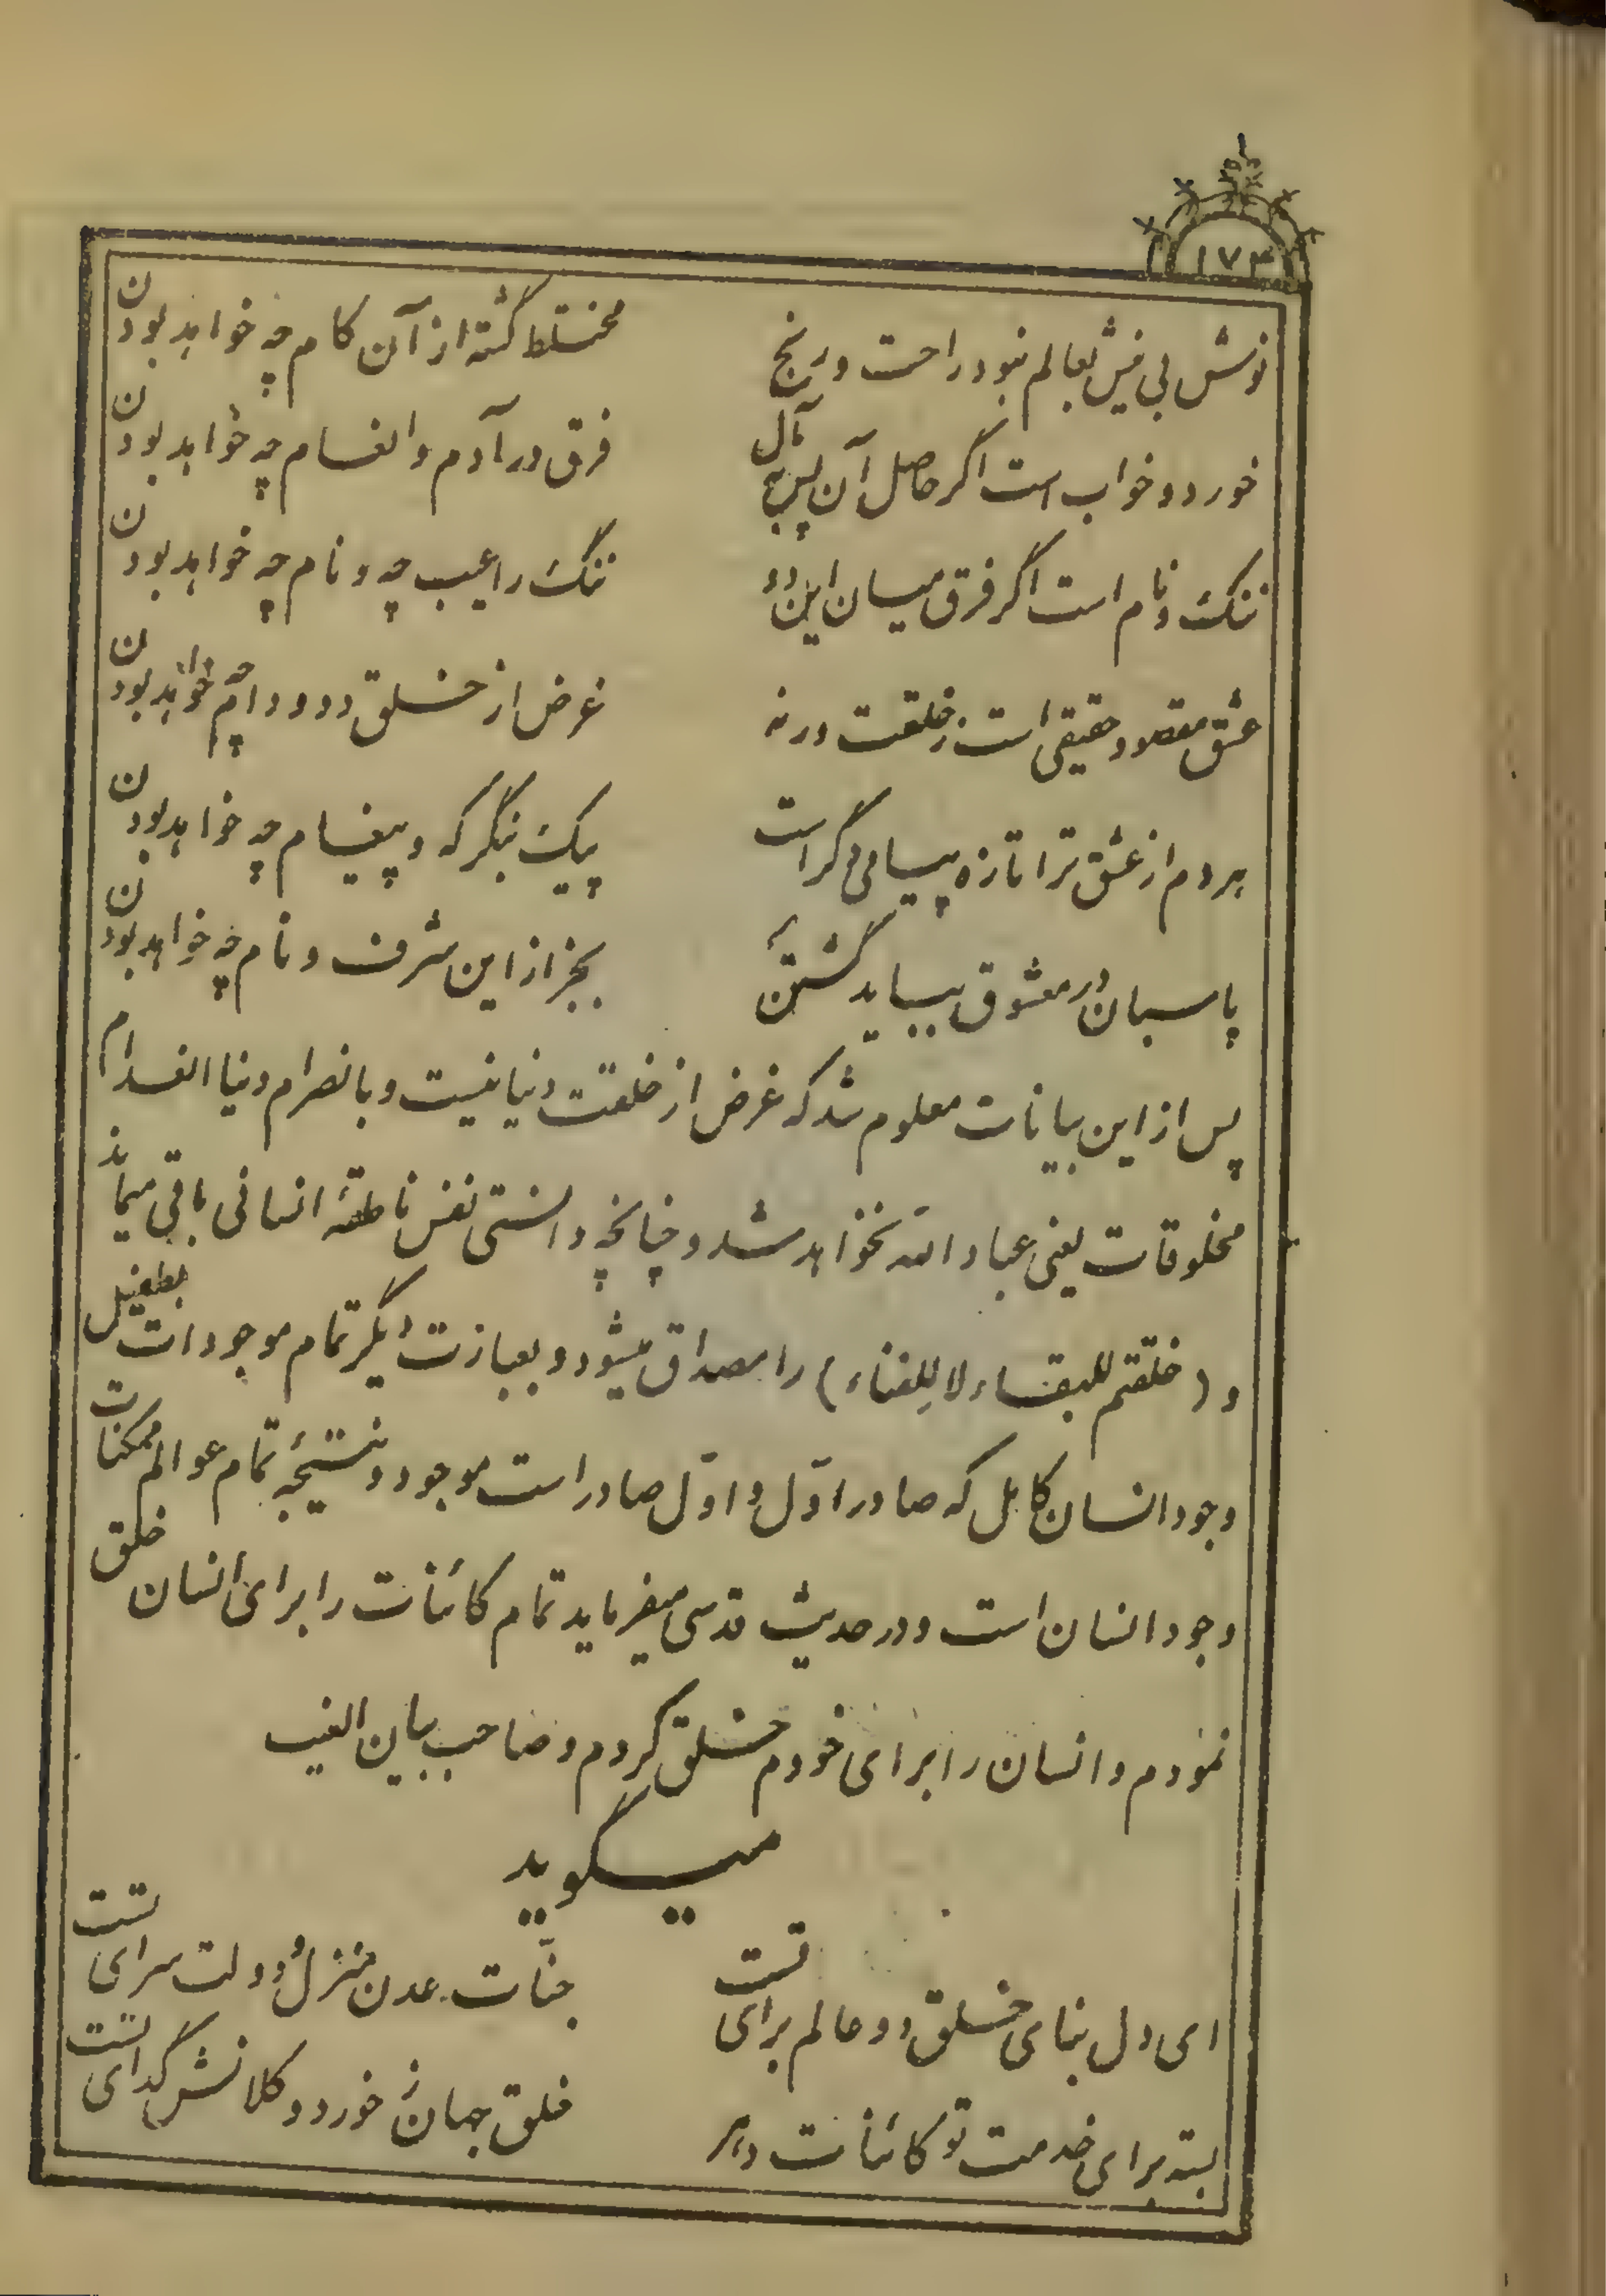 ۱۷۳
نوش بی نیش بعالم نبود راحت و رنج مختلط گشته از آن کام چه خواهد بودن
خورد و خواب است اگر حاصل آن پس بمآل فرق در آدم و انعام چه خواهد بودن
ننگ و نام است اگر فرق میان این دو ننگ را عیب چه و نام چه خواهد بودن
عشق مقصود حقیقی است ز خلقت ورنه غرض از خلق دد و دام چه خواهد بودن
هر دم از عشق ترا تازه پیامی دگر است پیک بنگر که و پیغام چه خواهد بودن
پاسبان در معشوق بباید گشتن بجز از این شرف و نام چه خواهد بودن
پس از این بیانات معلوم شد که غرض از خلقت دنیا نیست و بانصرام دنیا انعدام
مخلوقات یعنی عباد الله نخواهد شد و چنانچه دانستی نفس ناطقهٔ انسانی باقی میماند
و (خلقتم للبقاء لا للفناء) را مصداق میشود و بعبارت دیگر تمام موجودات بطفیل
وجود انسان کامل که صادر اوّل و اوّل صادر است موجود و نتیجهٔ تمام عوالم ممکنات
وجود انسان است و در حدیث قدسی میفرماید تمام کائنات را برای انسان خلق
نمودم و انسان را برای خودم خلق کردم و صاحب بیان الغیب
میگوید
ای دل بنای خلق دو عالم برای تست جنّات عدن منزل و دولت سرای تست
بسته برای خدمت تو کائنات خلق جهان ز خورد و کلانش گدای تست